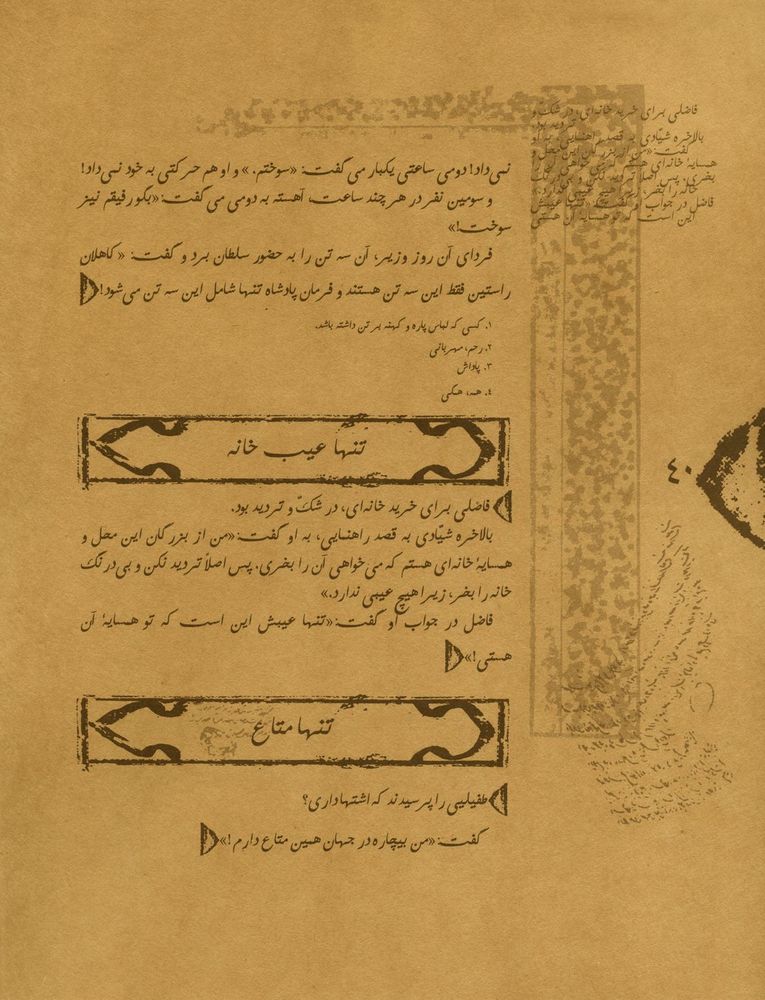 نمی‌داد! دومی ساعتی یکبار می‌گفت: «سوختم.» و او هم حرکتی به خود نمی‌داد!
و سومین نفر در هر چند ساعت، آهسته به دومی می‌گفت: «بگو رفیقم نیز
سوخت!»
فردای آن روز وزیر، آن سه تن را به حضور سلطان برد و گفت: «کاهلان
راستین فقط این سه تن هستند و فرمان پادشاه تنها شامل این سه تن می‌شود!»
۱. کسی که لباس پاره و کهنه بر تن داشته باشد.
۲. رحم، مهربانی
۳. پاداش
۴. همه، همگی
تنها عیب خانه
فاضلی برای خرید خانه‌ای، در شکّ و تردید بود.
بالاخره شیّادی به قصد راهنمایی، به او گفت: «من از بزرگان این محل و
همسایهٔ خانه‌ای هستم که می‌خواهی آن را بخری. پس اصلاً تردید نکن و بی‌درنگ
خانه را بخر، زیرا هیچ عیبی ندارد.»
فاضل در جواب او گفت: «تنها عیبش این است که تو همسایهٔ آن
هستی!»
تنها متاع
طفیلیی را پرسیدند که اشتها داری؟
گفت: «من بیچاره در جهان همین متاع دارم!»
۴۰
فاضلی برای خرید خانه‌ای، در شکّ و
تردید بود.
بالاخره شیّادی به قصد راهنمایی، به او
گفت: «من از بزرگان این محل و
همسایهٔ خانه‌ای هستم
بخری. پس اصلاً تردید نکن و
خانه را بخر، زیرا هیچ عیبی ندارد.»
فاضل در جواب او گفت: «تنها عیبش
این است که تو همسایهٔ آن هستی